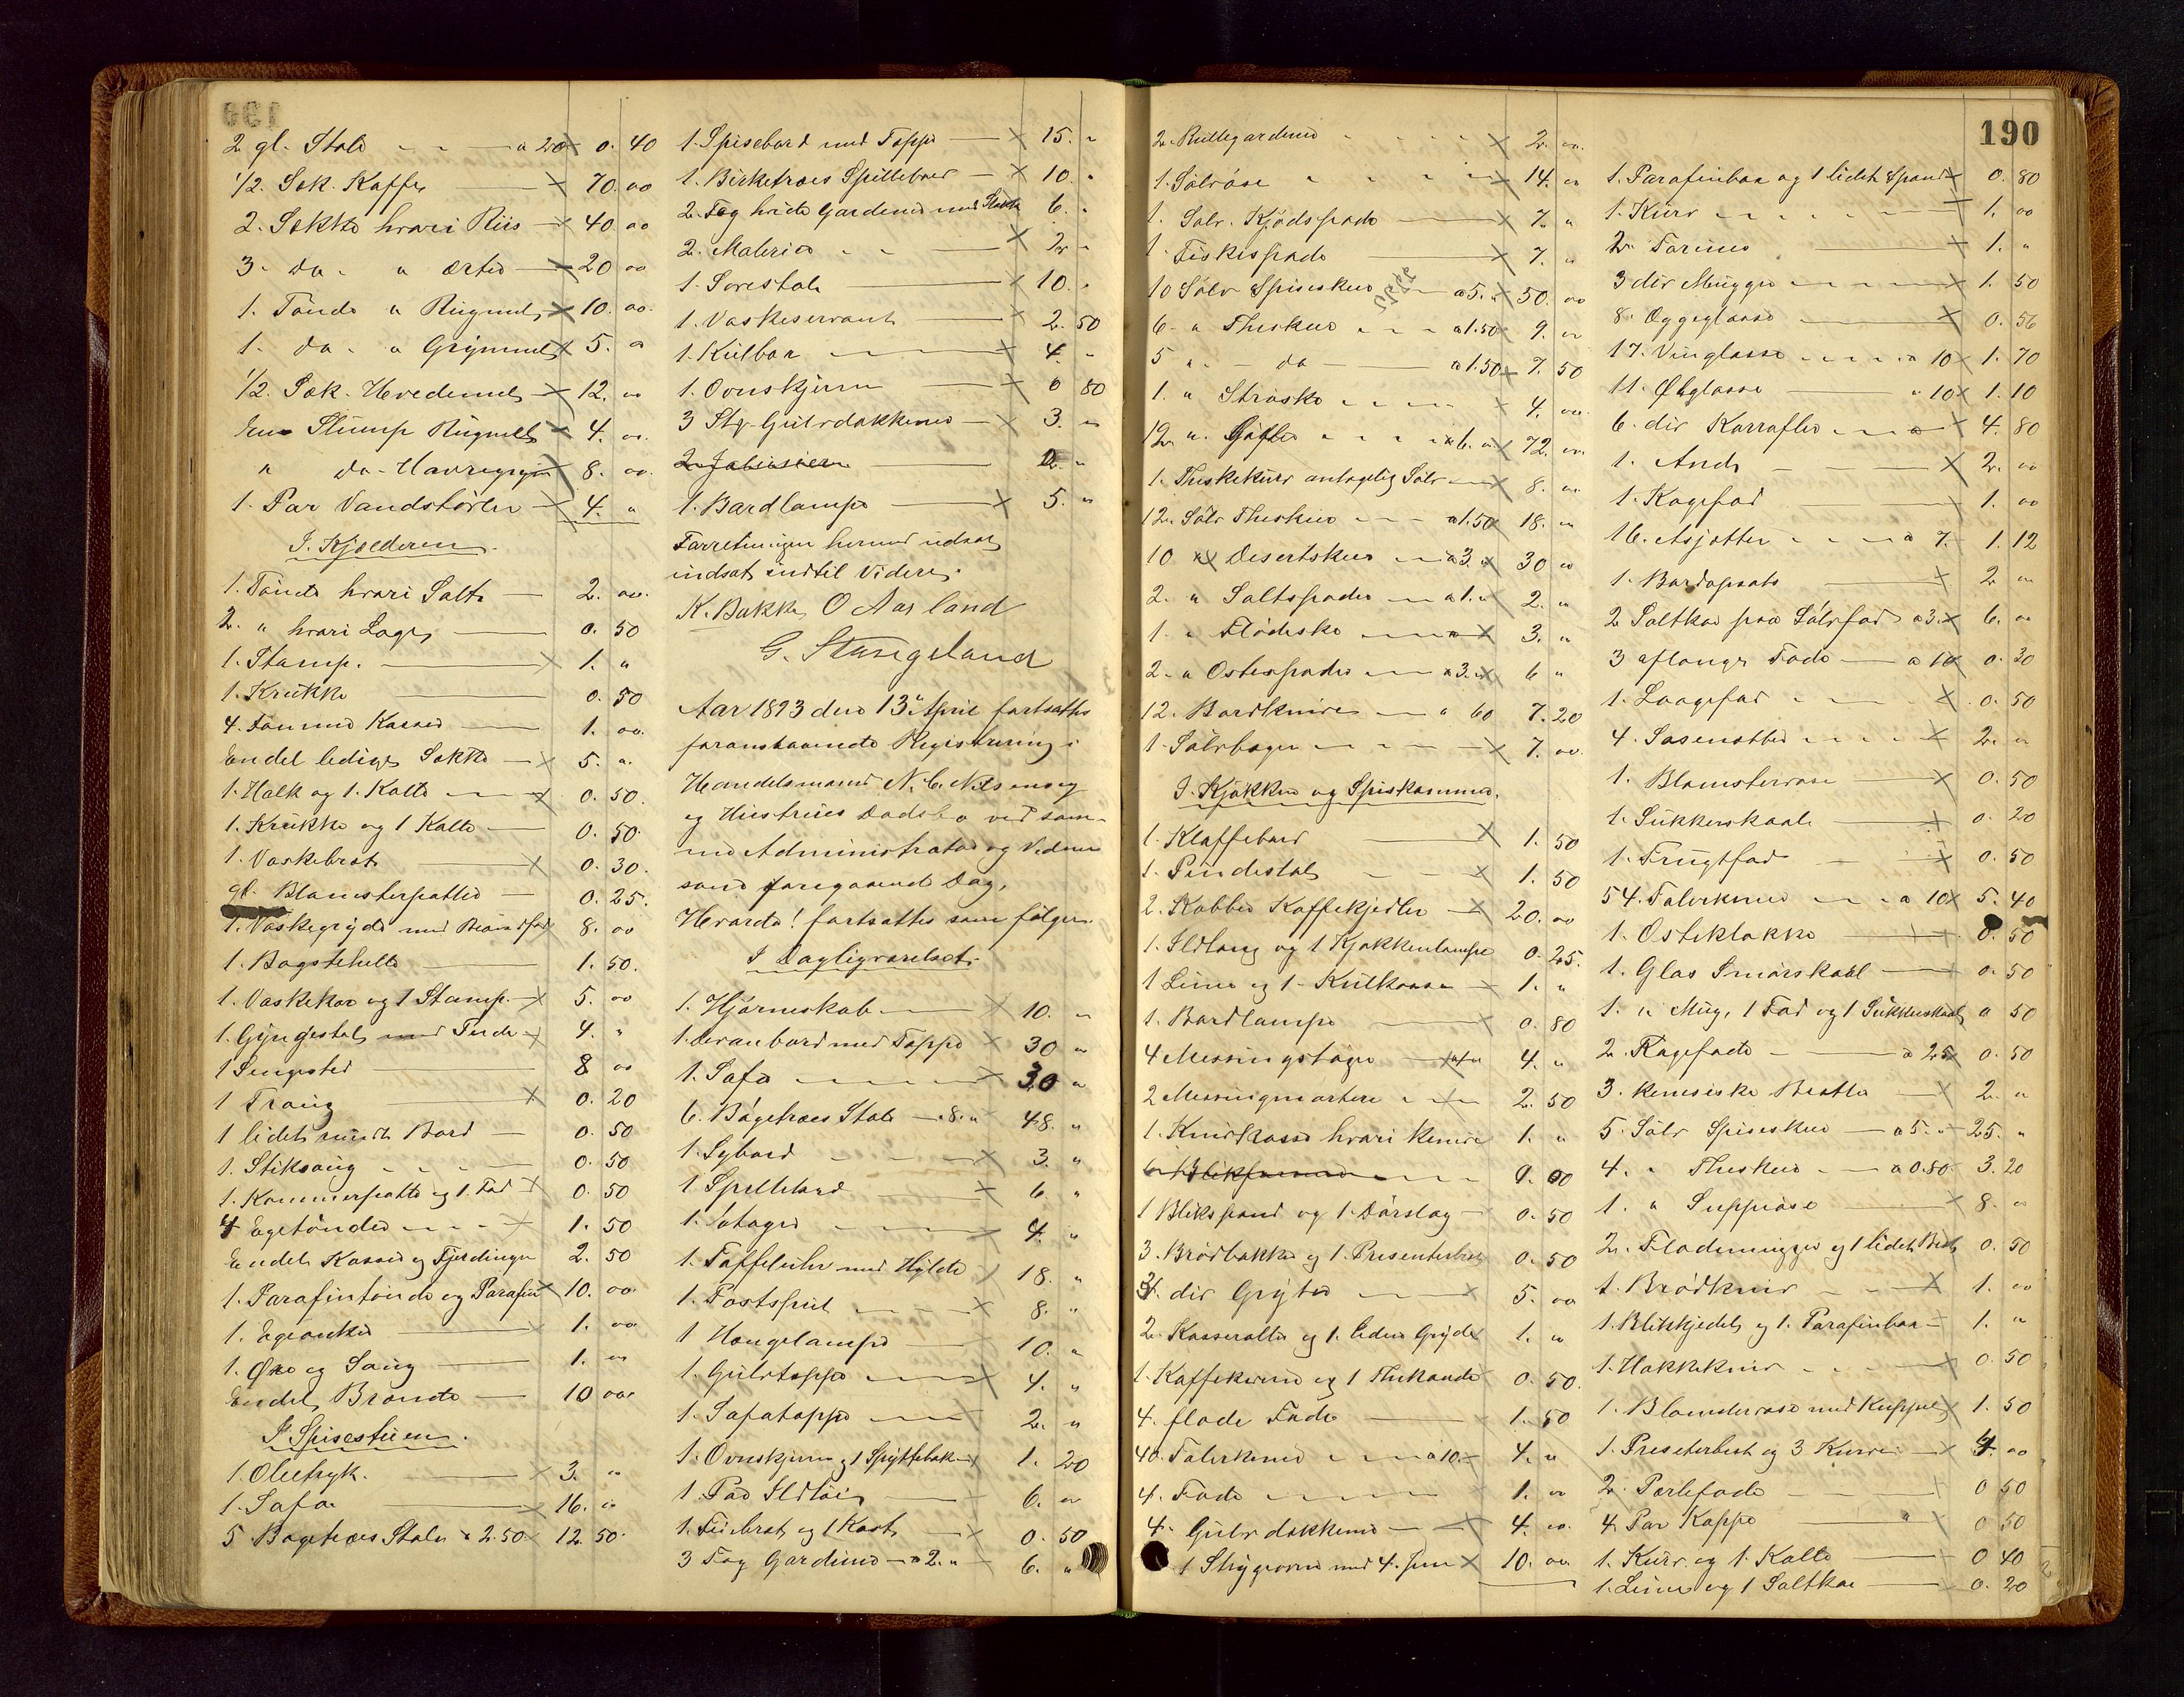 190
2 gl. Stole a 20 0. 40
1/2. Sæk. Kaffe 70. oo
2. Sække hvori Riis 40 oo
3. do. " Erter 20 oo
1. Tönde " Rugmel 10. oo.
1. do. " Grynmel 5. "
1/2. Sæk. Hvedemel 12. oo
En Slump Rugmel 4. oo.
" do. Havregryn 8. oo.
1. Par Vandstövler 4. "
I. Kjælderen.
1. Tönde hvori Salt 2. oo.
2. " hvori Lage 0. 50
1. Stamp. 1. "
1. Krukke 0. 50
4. tomme Kasser 1. oo.
Endel ledige Sække 5. ".
1. Holk og 1. Kolle 0. 50.
1. Krukke og 1 Kolle 0. 50.
1. Vaskebræt 0. 30.
gl. Blomsterpotter 0. 25.
1. Vaskegryde med 8. oo
1. Bagstehelle 1. 50.
1. Vaskekar og 1 Stamp. 5. oo
1. Gyngestol 4. "
1 Sengested 8 oo
1 Traug 0. 20
1 lidet rundt Bord 0. 50
1. Stiksaug 0. 50
1. Kammerpotte og 1. Fad 0. 50
4 Egetönder 1. 50
Endel Kasser og Fjerdinger 2. 50
1. Parafintönde og Parafin 10. oo
1. Egeanker 1. oo
1. Öxe og Saug 1. oo
Endel Brænde 10 oo
I Spisestuen.
1. Olietryk. 3. "
1. Sofa 16. "
5 Bøgetræes Stole a 2.50. 12. 50.
1. Spisebord med Teppe 15. "
1. Birketræes Spillebord 10. "
2. Fag hvide Gardiner med 6. "
2. Malerier 2. "
1. Lorestole 10. "
1. Vaskeservant 2. 50
1. Kulbox 4. "
1. Ovnskjerm 0 80
3 Stk. Gulvdækkener 3. "
2 Jalusier 2. "
1. Bordlampe 5. "
Forretningen hermed udsat
indsat indtil Videre.
K. Bakke O Aarland
G. Stangeland
Aar 1893 den 13de April fortsattes
foranstaaende Registrering i
Handelsmand N. C. Nilsen og
og Hustrues Dødsbo ved sam-
me Administrator og Vidner
som foregaaende Dag.
Hvorda! fortsattes som fölger
I Dagligværelset.
1. Hjörneskab 10. "
1. Divanbord med Teppe 30 "
1. Sofa 30 "
6. Bögetræes Stole a 8. " 48. "
1. Sybord 3. "
1 Spillebord 6. "
1. Etager 4. "
1. Taffeluhr med Hylde 18. "
1. Postspeil 8. "
1 Hængelampe 10. "
1. Gulvteppe 4. "
1. Sofateppe 2. "
1. Ovnskjerm og 1 Spyttebak 1. 20
1. Par Ildtöi 6. "
1. Feiebræt og 1 Kost 0. 50
3 Fag Gardiner a 2. " 6. "
2. Rullegardiner 2. oo.
1. Sölvöse 14. "
1. Sölv. Kjödspade 7. "
1. Fiskespade 7. "
10 Sölv Spiseskeer a 5. " 50. oo
6. " Theskeer a 1.50 9. "
5 " do a 1.50 7. 50
1. " Ströske 4. oo.
12. " Gafler a 6. " 72. oo
1. Theskekurv antagelig Sölv 8. oo
12. Sölv Theskeer a 1.50 18. "
10 " Desertskeer a 3. " 30 oo
2. " Saltspader a 1. " 2. "
1. " Flödeske 3. "
2. " Ostespader a 3. " 6 "
12. Bordknive " 60 7. 20
1. Sölvbæger 7. oo.
I. Kjøkken og Spiskammer.
1. Klaffebord 1. 50
1. Pindestol 1. 50
2. Kobber Kaffekjedler 20. oo
1. Ildtang og 1 Kjøkkenlampe 0. 25.
1 Lime og 1. Kulkasse 1. "
1. Bordlampe 0. 80
4 Messingstager 4. "
2 Messingmortere 2. 50
1. Knivkasse hvori Knive 1. "
6 Blikformer 0. 00
1 Blikspand og 1. Dörslag 0. 50
3. Brödbakker og 1. Presenterbret 0. 50
3. div Gryter 5. oo
2. Kasseroller og 1. liden Gryde 1. "
1. Kaffekande og 1 Thekande 0. 50.
4. flade Fade 1. 50
40. Talerkener a 10. 4. "
4. Fade 1. "
4. Gulvdækkener 4. oo.
1 Strygeovn med 4. Jern 10. oo
1. Parafinbox og 1 lidet Spand 0. 80
1. Kurv 1. oo
2. Teriner 1. "
3 div Mugger 1. 50
8. Æggeglasse 0. 56
17. Vinglasse a 10 1. 70
11. Ölglasse " 10 1. 10
6. div Karafler 4. 80
1. And 2. oo
1. Kagefad 1. oo
16. Asjetter a 7. 1. 12
1. Bordopsats 2. "
2 Saltkar paa Sölvfod a 3. 6. oo
3 aflange Fade a 10 0. 30
1. Laagefad 0. 50
4. Sausenøbber 2. "
1. Blomstervase 0. 50
1. Sukkerskaal 0. 20
1. Frugtfad 0. 50
54. Talerkener a 10 5. 40
1. Osteklokke 0. 50
1. Glas Smörskaal 0. 50
1. " Mug, 1 Fad og 1 Sukkerskaal 0 50
2. Kagefade a 25 0. 50
3. kinesiske Bretter 2. "
5. Sölv Spiseskeer a 5. " 25. "
4. " Theskeer a 0.80 3. 20
1. " Suppeöse 8. "
2. Flödemugger og 1 lidet Bret 0. 50
1. Brödkniv 1. oo
1. Blikkjedel og 1. Parafinbox 1. "
1. Hakkekniv 0. 50
1. Blomstervase med Kuppel 1. 50
1. Presenterbret og 3 Kurve 4. oo
2. Perlefade 0 50
4 Par Kopper 0 50
1. Kurv. og 1. Kolle 0 40
1. Lime og 1 Saltkar 0. 20